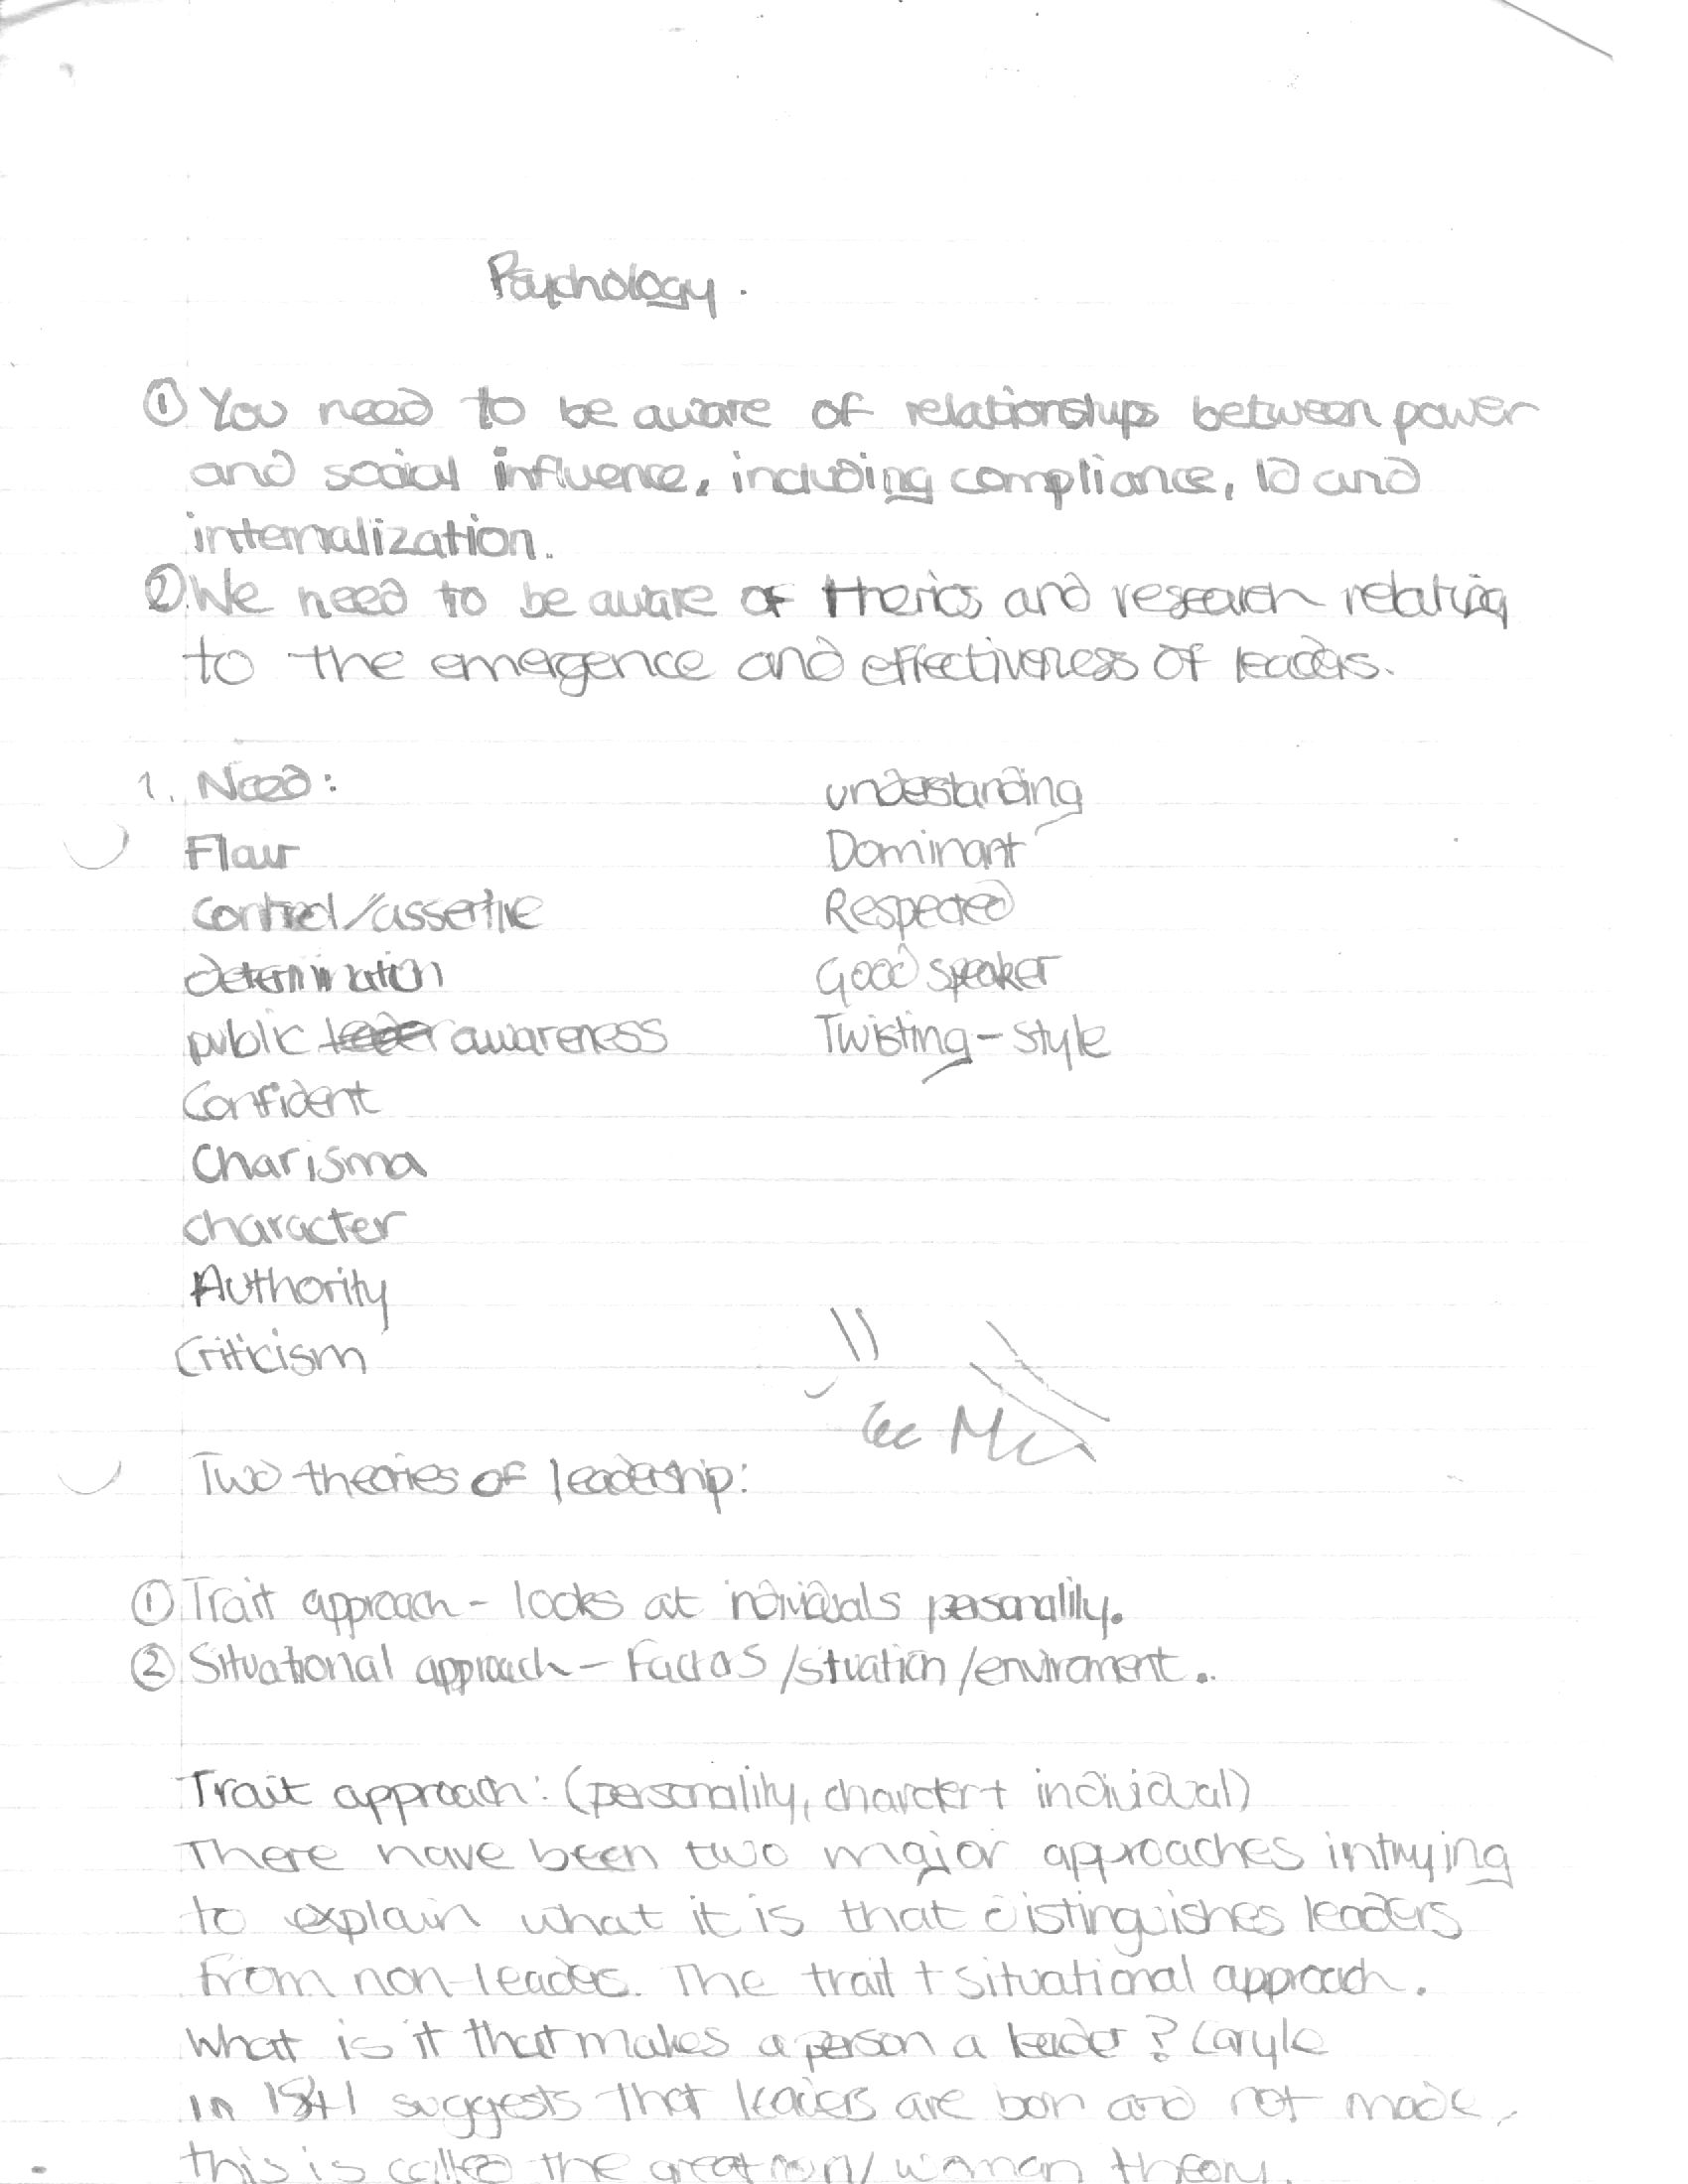 Psychology.
① You need to be aware of relationships between power
and social influence, including compliance, ID and
internalization.
② We need to be aware of therics and research relating
to the emergence and effectiveness of leaders.
1. Need:
Flair
Control/assertive
determination
public leader awareness
Confident
Charisma
character
Authority
Criticism
understanding
Dominant
Respected
Good speaker
Twisting - style
Two theories of leadership:
① Trait approach - looks at individuals personality.
② Situational approach - Factors /situation /enviroment..
Trait approach: (personality, character + individual)
There have been two major approaches in trying
to explain what it is that distinguishes leaders
from non-leaders. The trait + situational approach.
What is it that makes a person a leader? Caryle
in 1841 suggests that leaders are born and not made,
this is called the great man/woman theory.